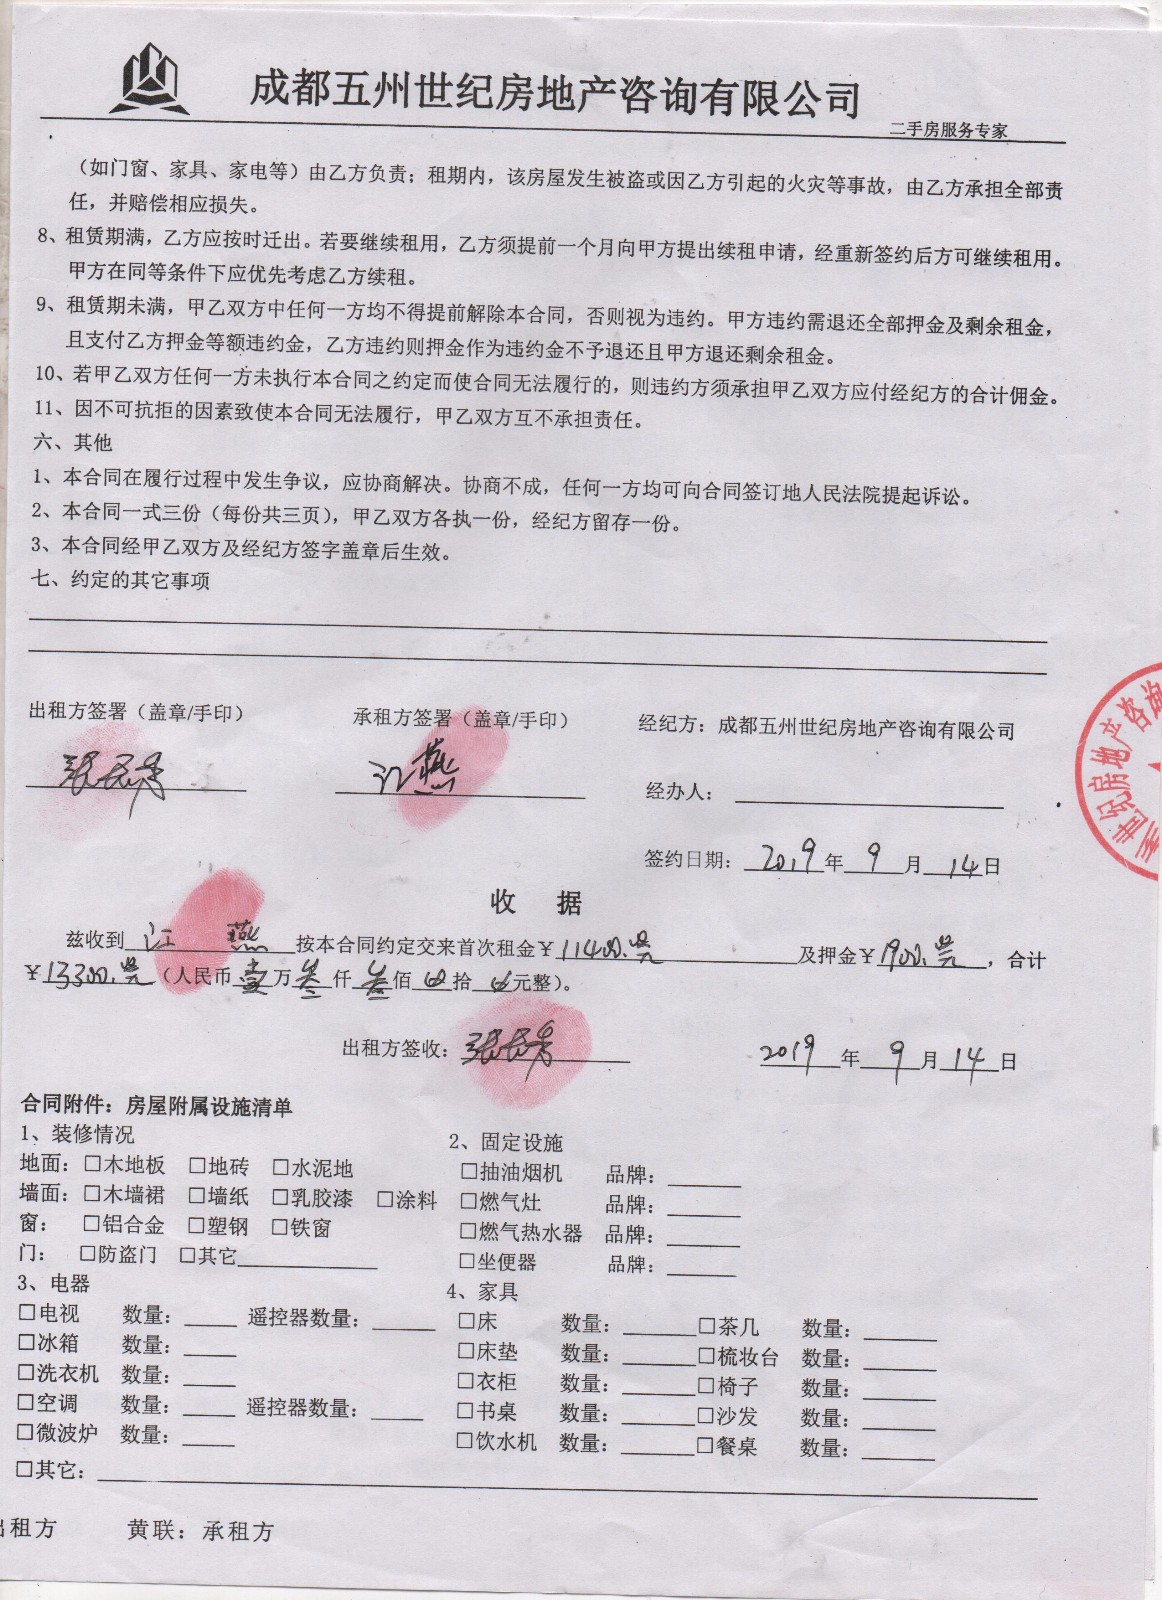 成都五州世纪房地产咨询有限公司
二手房服务专家
（如门窗、家具、家电等）由乙方负责；租期内，该房屋发生被盗或因乙方引起的火灾等事故，由乙方承担全部责
任，并赔偿相应损失。
8、租赁期满，乙方应按时迁出。若要继续租用，乙方须提前一个月向甲方提出续租申请，经重新签约后方可继续租用。
甲方在同等条件下应优先考虑乙方续租。
9、租赁期未满，甲乙双方中任何一方均不得提前解除本合同，否则视为违约。甲方违约需退还全部押金及剩余租金，
且支付乙方押金等额违约金，乙方违约则押金作为违约金不予退还且甲方退还剩余租金。
10、若甲乙双方任何一方未执行本合同之约定而使合同无法履行的，则违约方须承担甲乙双方应付经纪方的合计佣金。
11、因不可抗拒的因素致使本合同无法履行，甲乙双方互不承担责任。
六、其他
1、本合同在履行过程中发生争议，应协商解决。协商不成，任何一方均可向合同签订地人民法院提起诉讼。
2、本合同一式三份（每份共三页），甲乙双方各执一份，经纪方留存一份。
3、本合同经甲乙双方及经纪方签字盖章后生效。
七、约定的其它事项
出租方签署（盖章/手印） 承租方签署（盖章/手印） 经纪方：成都五州世纪房地产咨询有限公司
江燕
经办人：
签约日期：2019年9月14日
州世纪房地产咨询
收 据
兹收到江燕按本合同约定交来首次租金￥11400.元及押金￥1900.元，合计
￥13300.元（人民币壹万叁仟叁佰0拾0元整）。
出租方签收： 2019年9月14日
合同附件：房屋附属设施清单
1、装修情况 2、固定设施
地面：□木地板 □地砖 □水泥地 □抽油烟机 品牌：
墙面：□木墙裙 □墙纸 □乳胶漆 □涂料 □燃气灶 品牌：
窗： □铝合金 □塑钢 □铁窗 □燃气热水器 品牌：
门： □防盗门 □其它 □坐便器 品牌：
3、电器 4、家具
□电视 数量： 遥控器数量： □床 数量： □茶几 数量：
□冰箱 数量： □床垫 数量： □梳妆台 数量：
□洗衣机 数量： □衣柜 数量： □椅子 数量：
□空调 数量： 遥控器数量： □书桌 数量： □沙发 数量：
□微波炉 数量： □饮水机 数量： □餐桌 数量：
□其它：
出租方 黄联：承租方